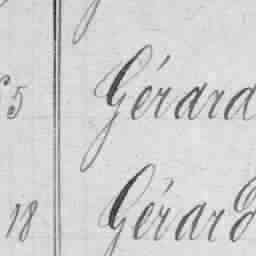 5 Gérard
18 Gérard